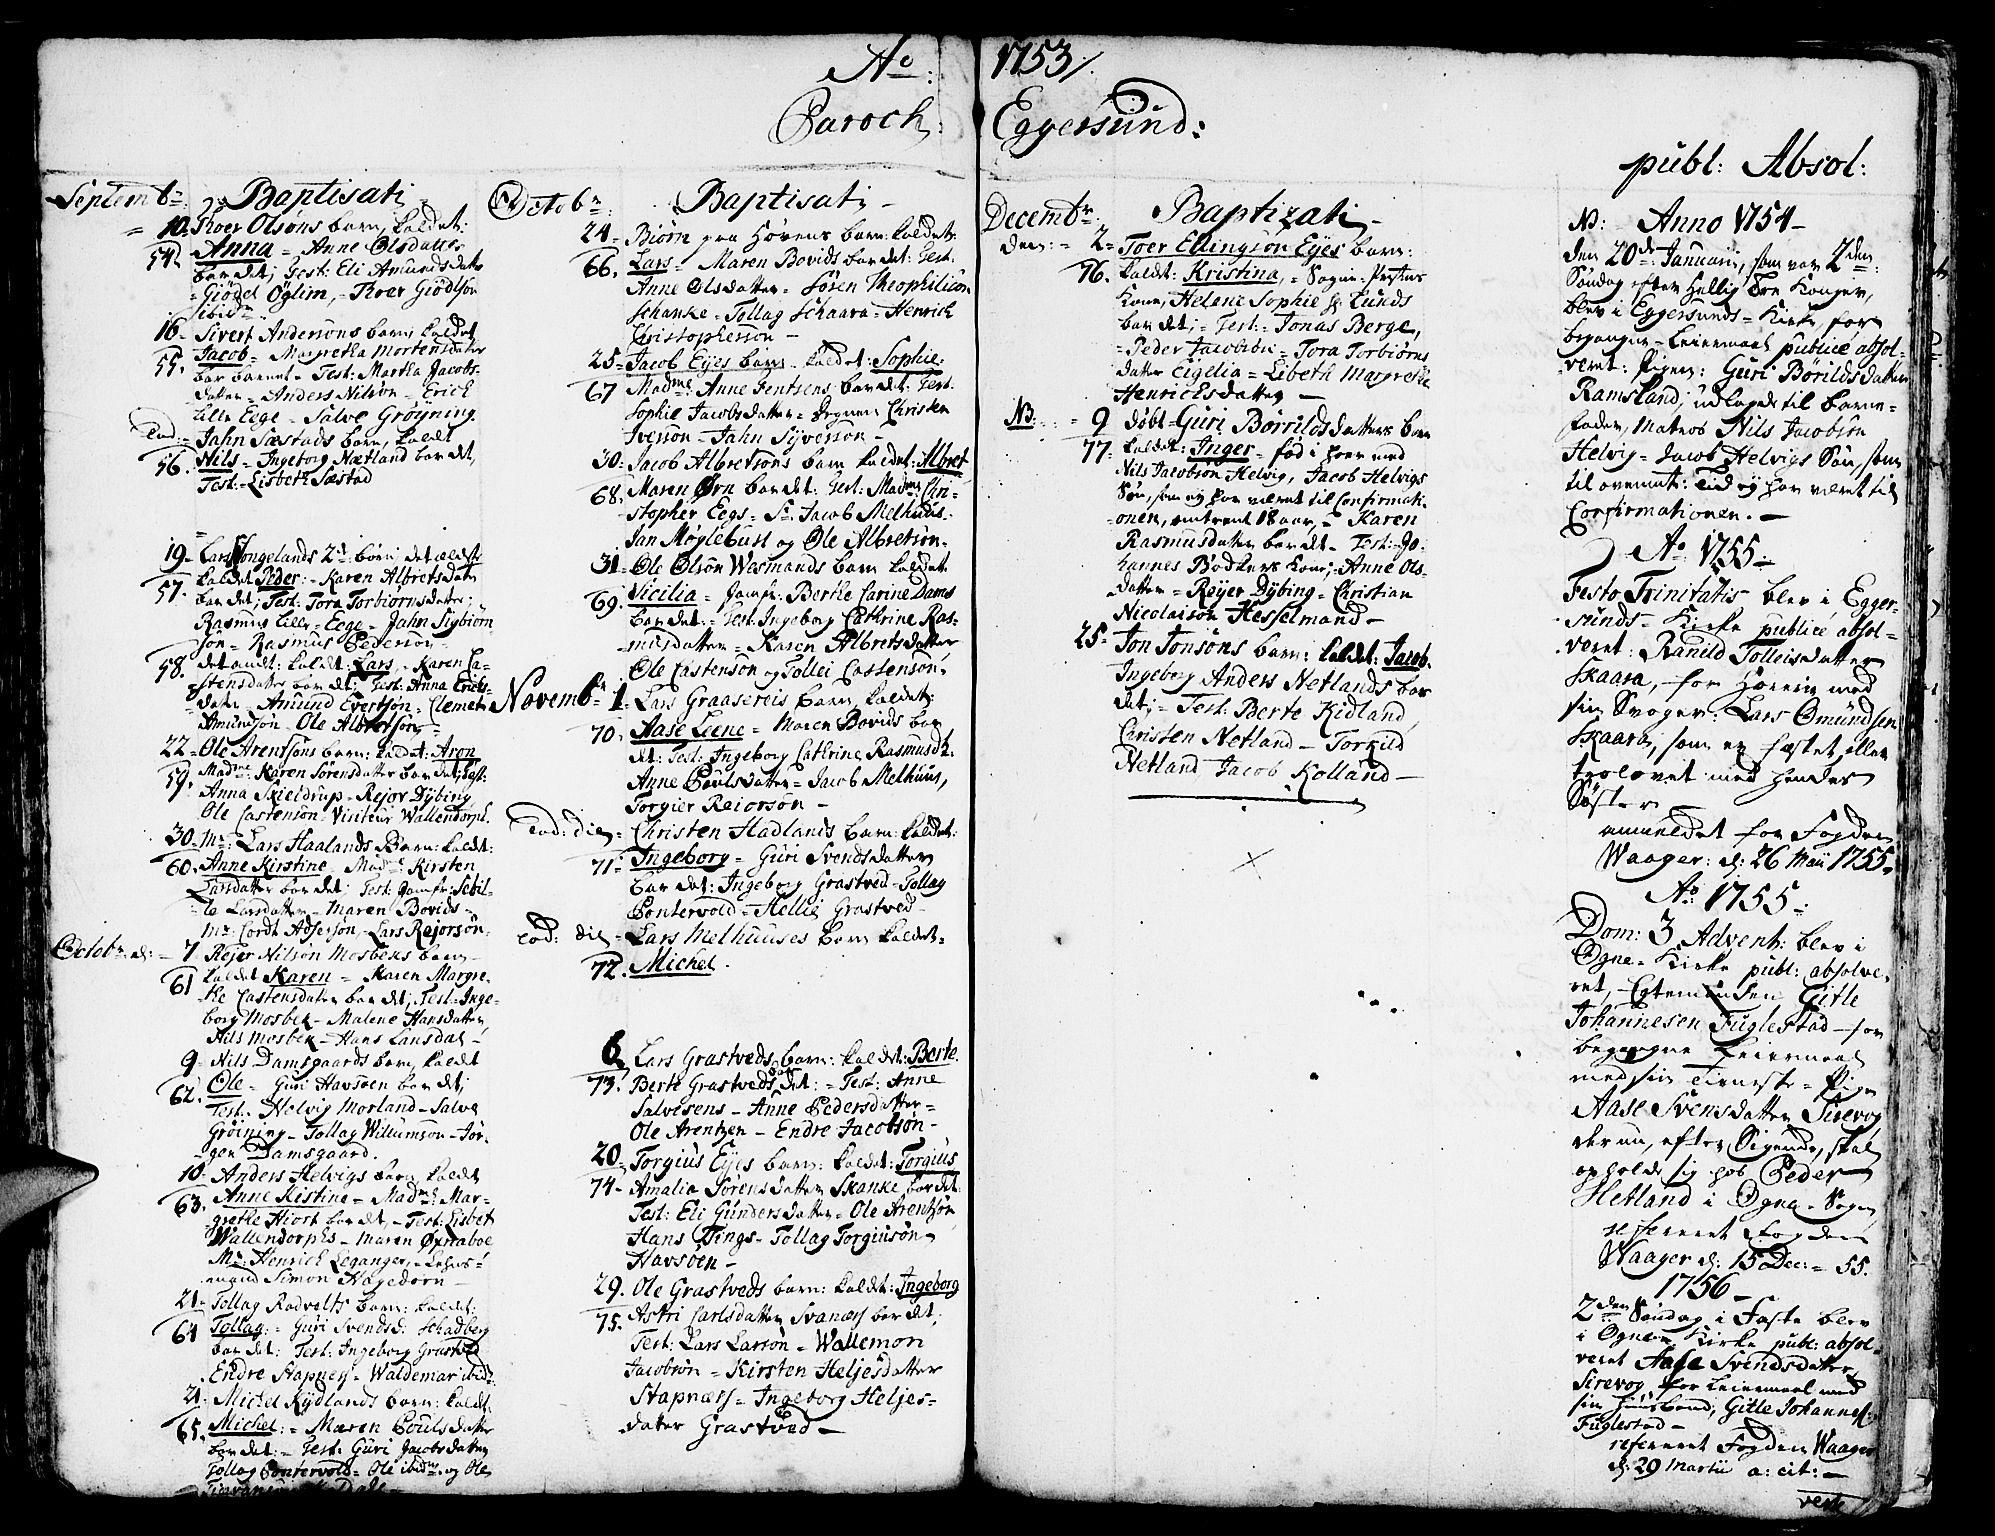 Aº: 1753/.
Paroch: Eggersund:
Septembr: Baptisati
10. Roer Olsøns barn, kaldet:
54. Anna = Anne Olsdatter
bar det; Test: Eli Amundsdatr
= Giødel Øglim, = Roer Giødsøn
ibid:
16- Sivert Andersøns barn, kaldet
55. Jacob = Margretha Mortensdatter
bar barnet- Test: Martha Jacobs-
datter = Anders Nilsøn - Erich
Lille Eege - Salve Grøyning.
Eod:= Jahn Sæstads barn, kaldt
56. Nils = Ingeborg Nætland bar det,
Test:= Lisbeth Sæstad
19- Lars Tengelands 2de børn: det ældste
57. kaldet Peder:- Karen Albretsdatr
bar det; Test: Tora Torbiørnsdatter;
Rasmus Lille = Eege = Jahn Sigbiørn-
søn = Rasmus Pedersøn
58. det andt: kaldt: Lars, = Karen Ca-
stensdatter bar det; Test: Anna Erics-
datr = Amund Evertsøn = Clemet
Amundsøn - Ole Albretsøn =
22- Ole Arentsøns barn: kaldet: Aron
59. Madme Karen Sörensdatter bar det; Test:
Anna Skieldrup = Rejor Dybing
Ole Castensøn = Visiteur Wallendorph.
30- Mr: Lars Haalands Barn: kaldet:
60. Anne Kirstine - Madme Kirsten
Larsdatter bar det; Test: Jomfr: Sebil-
le Larsdatter - Maren Bovids-
Mr: Cordt Adsersøn, - Lars Rejorsøn-
Octobr: d: - 7. Rejer Nilsøn Mosbeks barn-
61 kaldet Karen = Karen Margre-
the Castensdatter bar det; Test: Inge-
borg Mosbek - Malene Hansdatter
Nils Mosbek - Hans Lansdal -
9- Nils Damsgaards barn, kaldet
62. Ole - Guri Havsøen bar det;
Test: Helvig Morland - Salve
Grøining - Tollag Willumsøn - Jør-
gen Damsgaard.
10- Anders Helvigs barn kaldet
63. Anne Kistine - Madme Mar-
grethe Hiort bar det, - Test: Lisbet
Wallendorphs - Maren Øxnaboe
Mr: Henrich Leganger, - Lehns-
mand Simon Hagedorn -
21- Tollag Rodvelts barn: kaldet:
64 Tollag: - Guri Svendsd: Schadberg
bar det: Test: Ingeborg Grastved
Endre Stapness - Waldemar ibid:
21. Michel Kydlands barn: kaldet:
65. Michel: - Maren Poulsdatter
bar det: - Test: Guri Jacobsdatter
Tollag Pontervold - Ole ibidm og Ole
Octobr: Baptisati -
24- Biørn paa Høvens barn: kaldet:
66. Lars - Maren Bovids bar det: Test:
Anne Olsdatter = Søren Theophilion
Schanke = Tollag Schaara = Henrich
Christophersøn -
25- Jacob Eyes barn kaldet: Sophie:
67 Madme: Anne Jentsens bar det: Test:
Sophie Jacobsdatter = Christen
Iversøn - Jahn Syversøn -
30- Jacob Albretsøns barn kaldet: Albret
68. Maren Ørn bar det: Test: Madme Chri-
stopher Eegs = Sr: Jacob Melhuus-
Jan Møglebust og Ole Albretsøn.
31- Ole Olsøn Wesmands barn kaldet
69. Sicilia = Jomfr: Berthe Carine Dams
bar det: = Test: Ingeborg Cathrine Ras-
musdatter = Karen Albretsdatter
Ole Castensøn og Tollei Castensøn,
Novembr: 1- Lars Graasereis barn, kaldet:
70. Aase Leene - Maren Bovids bar
det: Test: Ingeborg Cathrine Rasmusd:
Anne Poulsdatter = Jacob Melhuus,
Torgier Reiorsøn -
Eod: die = Christen Hadlands barn: kaldet:
71. Ingeborg = Guri Svendsdatter
bar det: Ingeborg Grastved - Tollag
Pontervold - Hellie Grastved -
eod: die - Lars Melhuuses barn kaldet-
72. Michel.
6 Lars Grastveds barn: kaldet: Berte.
73. Berte Grastveds bar det: = Test: Anne
Salvesens - Anne Pedersdatter =
Ole Arentzen - Endre Jacobsøn -
20- Torgius Eyes barn: kaldet: Torgius
74- Amalia Sørensdatter Skanke bar det
Test: Eli Gundersdatter = Ole Arentsøn
Hans Tings - Tollag Torgiusøn
Havsøen -
29. Ole Grastveds barn: kaldet: Ingeborg
75. Astri Carlsdatter Svanæs bar det,
Test: Lars Larsøn = Wallemon
Jacobsøn = Kirsten Heljesdatter
Stapnæss = Ingeborg Heljes-
datter Grastved -
Decembr: Baptizati -
den: = 2- Toer Ellingsøn Eyes barn:
76. kaldet: Kristina, = Sogne-Præstens
Kone, Helene Sophie Sl: Lunds
bar det; = Test: = Jonas Berge,
= Peder Jacobsøn = Tora Torbiørns
datter Eigelia = Lisbeth Margrethe
Henrichsdatter -
NB: = 9 døbt = Guri Børrildsdatters barn
77- kaldet: Inger = fød i hoer med
Nils Jacobsøn Helvig, Jacob Helvigs
Søn, som ey har været til Confirmati-
onen, omtrent 18 aar, = Karen
Rasmusdatter bar det - Test: Jo-
hannes Bødkers kone; - Anne Ols-
datter = Reyer Dybing = Christian
Nicolaisøn Hesselmand -
25- Jon Jonsøns barn: kaldet: Jacob.
Ingeborg Anders Netlands bar
det; = Test: Berte Kidland,
Christen Netland - Torkild
Netland Jacob Kolland -
publ: Absol:
NB: Anno 1754-
den 20de: Januarii, som var 2den:
Søndag efter Hellig Tre Konger,
blev i Eggersunds - Kirke for
begangne Leiermaal publice absol-
veret: Pigen: Guri Borildsdatter
Ramsland; udlagde til barne-
fader, Matros Nils Jacobsøn
Helvig - Jacob Helvigs Søn, som
til ovenmt: Tid ey har været til
Confirmationen. -
Aº 1755-
Festo Trinitatis blev i Egger-
sunds - Kirke publice absol-
veret: Ranild Tolleisdatter
Skaara, for Hoererie med
sin Svoger: Lars Omundsen
Skaara, som er fæstet eller
trolovet med hendes
Søster
anmeldet for Fogden
Waager: d: 26 Maii 1755.
Aº 1755-
Dom: 3 Advent: blev i
Ogne = Kirke publ: absolve-
ret, - Egtemanden Gitle
Johannesen Fuglestad - for
begangne Leiermaal
med sin Tieneste = Pige
Aase Svensdatter Sirevog
der nu, efter Sigende, skal
opholde sig hos Peder
Hetland i Ogne - Sogn,
refereret Fogden
Waager d: 15 Dec: - 55.
1756-
2den Søndag i Faste blev
i Ogne Kirke publ: absol-
veret Aase Svendsdatter
Sirevog for Leiermaal med
sin Huusbond; Gitle Johannes:
Fuglestad -
refereret Fogden Waager
d: 29 Martii a: cit: -